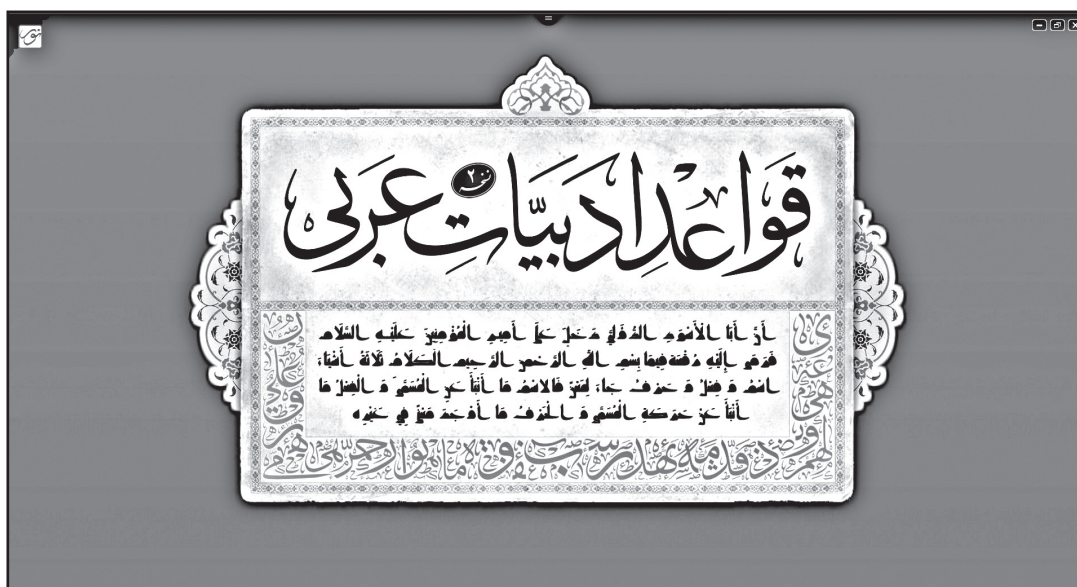 نور
قَوَاعدِ ادَبیّاتِ عَرَبی
نسخه ۲
أَنَّ أَبَا الْأَسْوَدِ الدُّؤَلِيَّ دَخَلَ عَلَى أَمِيرِ الْمُؤْمِنِينَ عَلَيْهِ السَّلَامُ
فَرَمَى إِلَيْهِ رُقْعَةً فِيهَا بِسْمِ اللَّهِ الرَّحْمَنِ الرَّحِيمِ الْكَلَامُ ثَلَاثَةُ أَشْيَاءَ
اسْمٌ وَ فِعْلٌ وَ حَرْفٌ جَاءَ لِمَعْنًى فَالاسْمُ مَا أَنْبَأَ عَنِ الْمُسَمَّى وَ الْفِعْلُ مَا
أَنْبَأَ عَنْ حَرَكَةِ الْمُسَمَّى وَ الْحَرْفُ مَا أَوْجَدَ مَعْنًى فِي غَيْرِهِ